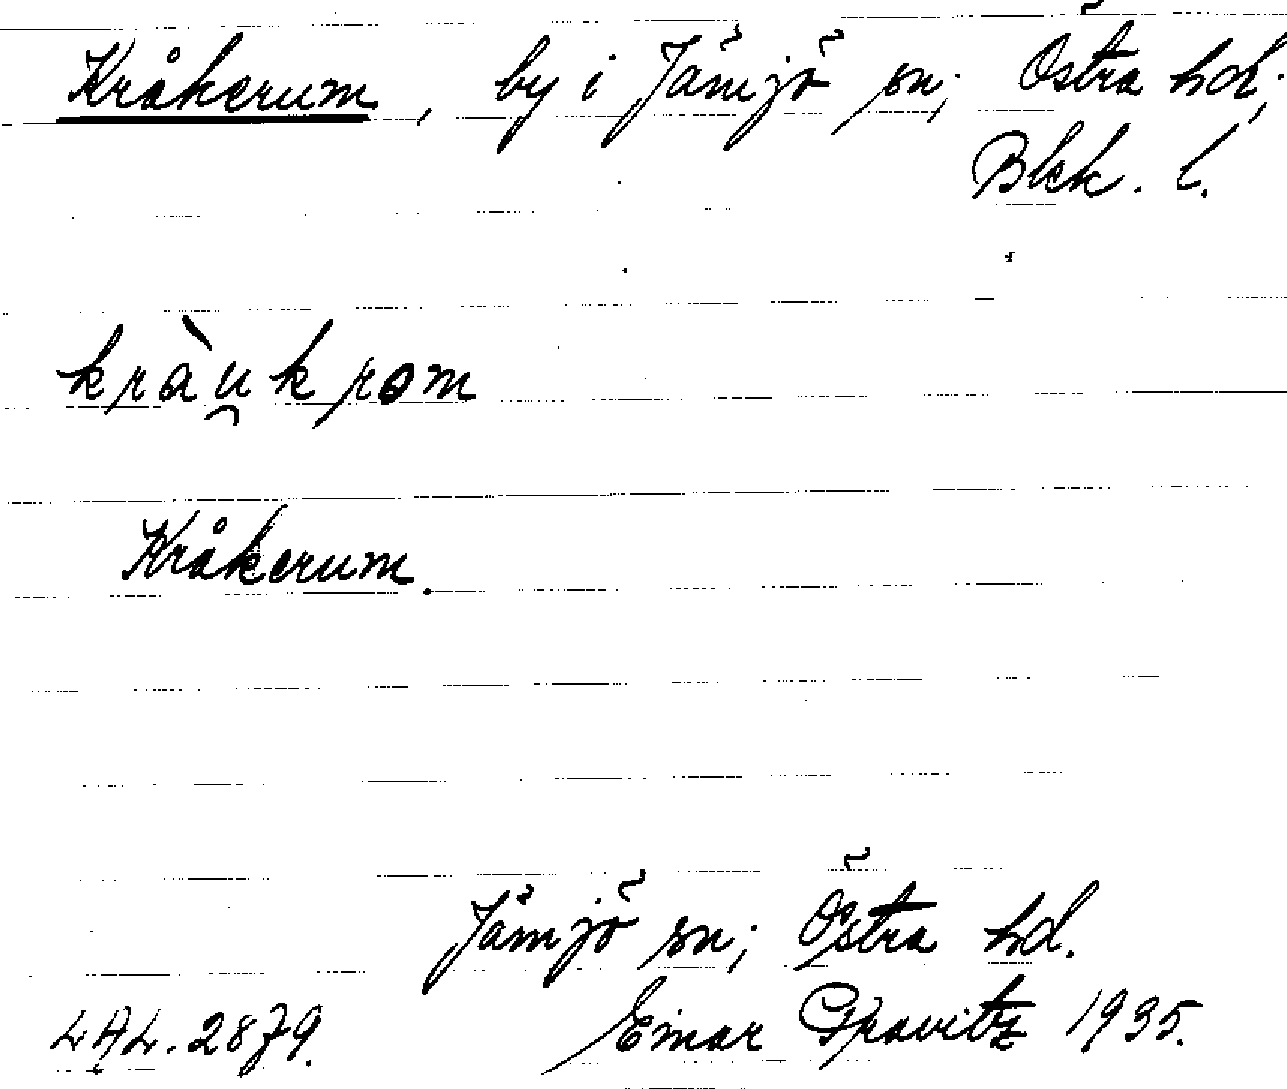 Kråkerum, by i Jämjö sn; Östra hd;
Blek. l.
kràu̯krom
Kråkerum.
Jämjö sn; Östra hd.
LAL. 2879. Einar Gravitz 1935.